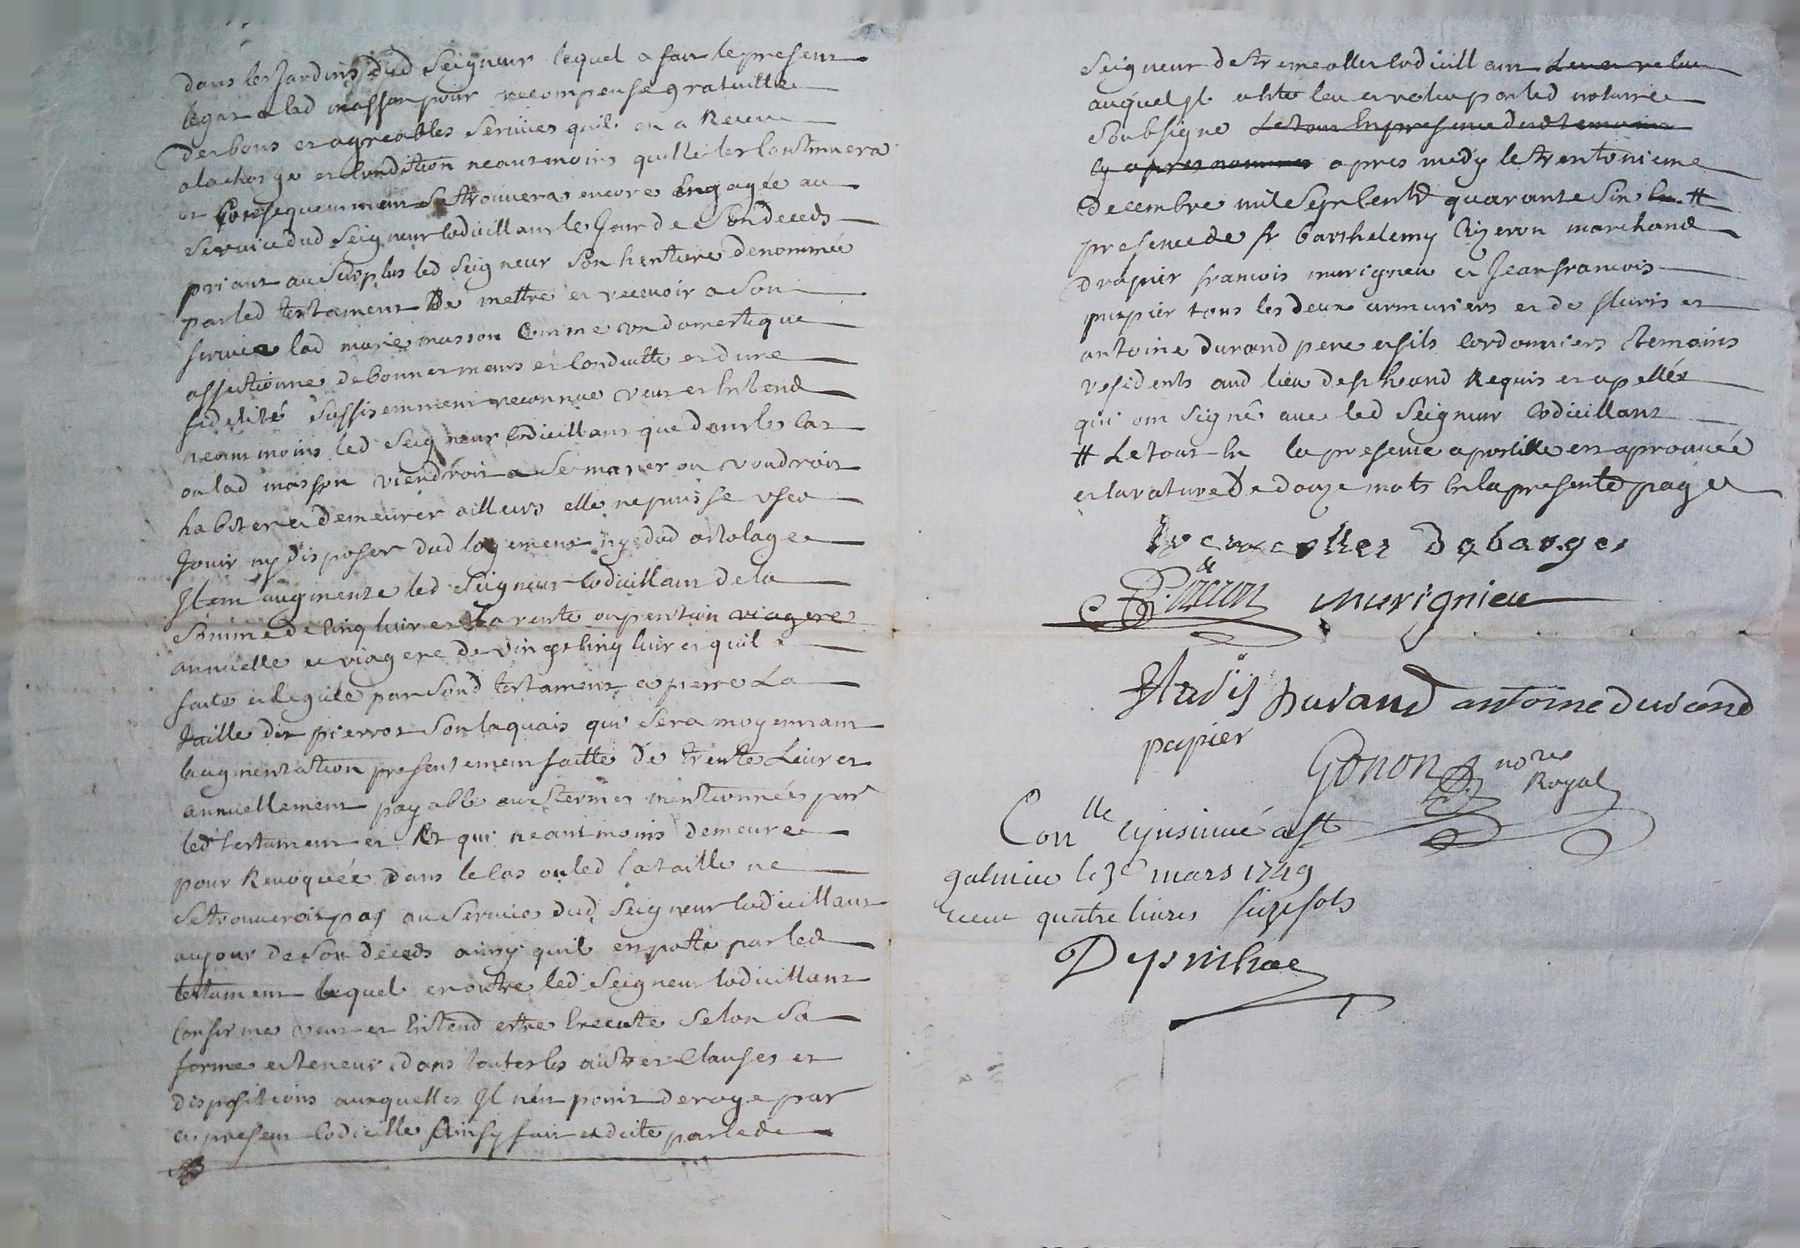 dans les Jardins dud Seigneur lequel a fait le present
legat a lad masson pour recompense gratuitte
des bons et agreables Services quil en a Receu
a la charge et Condition neantmoins quelle les Continuera
et Consequemment Se trouveras encore Engagée au
Service dud Seigneur Codicillant le Jour de Son deceds
priant au Surplus led Seigneur Son heritiere denommée
par led testament De mettre et recevoir a Son
service lad marie masson Comme un domestique
affectionne de bonnes mœurs et Conduitte et d'une
fidelité Suffisemment reconnue veut et Entend
neantmoins led Seigneur Codicillant que dans les Cas
ou lad masson viendroit a Se marier ou voudroit
habiter et demeurer ailleurs elle ne puisse user
Jouir ny disposer dud logement ny dud
Item augmente led Seigneur Codicillant de la
Somme de Cinq livres La rente ou pention viagere
annuelle et viagere de vingt Cinq livres quil a
faite et leguée par Sond testament a pierre La
taille dit pierrot Son laquais qui Sera moyennant
laugmentation presentement faitte de trente Livres
annuellement payable aux termes mentionnées par
led testament et Et qui neantmoins demeure
pour Revoquée Dans le Cas ou led la taille ne
Se trouveroit pas au Services dud Seigneur Codicillant
au jour de Son deceds ainsy quil est porté par led
testament lequel en outre led Seigneur Codicillant
Confirme veut et Entend estre Execute Selon Sa
forme et teneur dans touttes les autres Clauses et
dispositions auxquelles Il n'est point deroge par
ce present Codicille Ainsy fait et dicte par led
Seigneur de tremeolles Codicillant Leu et releu
auquel Il a este leu et releu par led notaire
Soubsigne Le tout En presence des temoins
cy apres nommes apres midy le trentunieme
Decembre mil Sept Cents quarante Six #
presence de Sr Barthelemy Rizeron marchand
drapier francois murigneu et Jean francois
papier tous les deux armuriers et de fleuris et
antoine durand pere et fils Cordonniers temoins
residents aud lieu de St heand Requis et apellés
qui ont Signé avec led Seigneur Codicillant
# Le tout En la presence apostille est aprouvée
et la rature De douze mots En la presente page
tremeolles De barges
murignieu
durand antoine durand
papier
Gonon nore
Royal
Conlle et insinué a St
galmier le 3e mars 1749
receu quatre livres seize sols